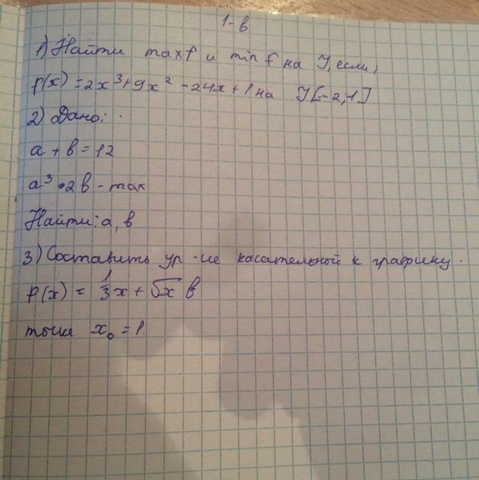 1-в
1) Найти maxf и minf на J, если,
f(x) = 2x³ + 9x² - 24x + 1 на J[-2,1]
2) Дано:
a + b = 12
a³ • 2b - max
Найти: a, b
3) Составить ур-ие касательной к графику.
f(x) = 1/3x + √x в
точке x₀ = 1.